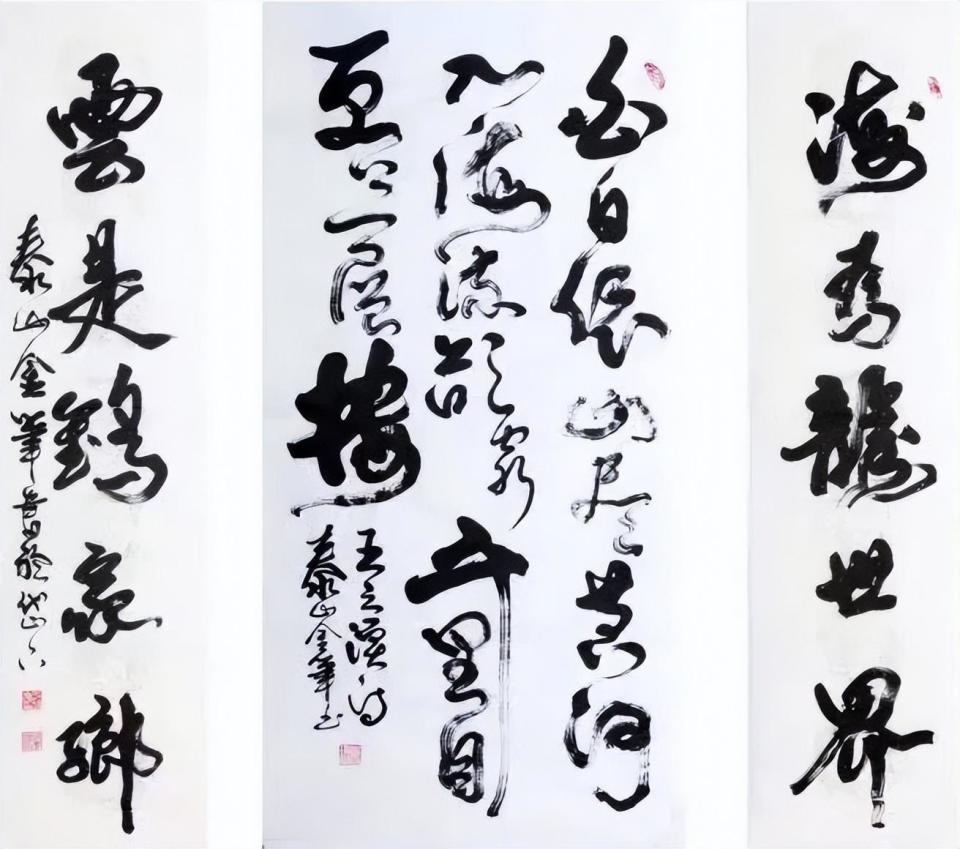 海為龍世界
白日依山尽黄河
入海流欲窮千里目
更上一層樓
王之渙诗
泰山金筆书
雲是鶴家鄉
泰山金筆書於岱下